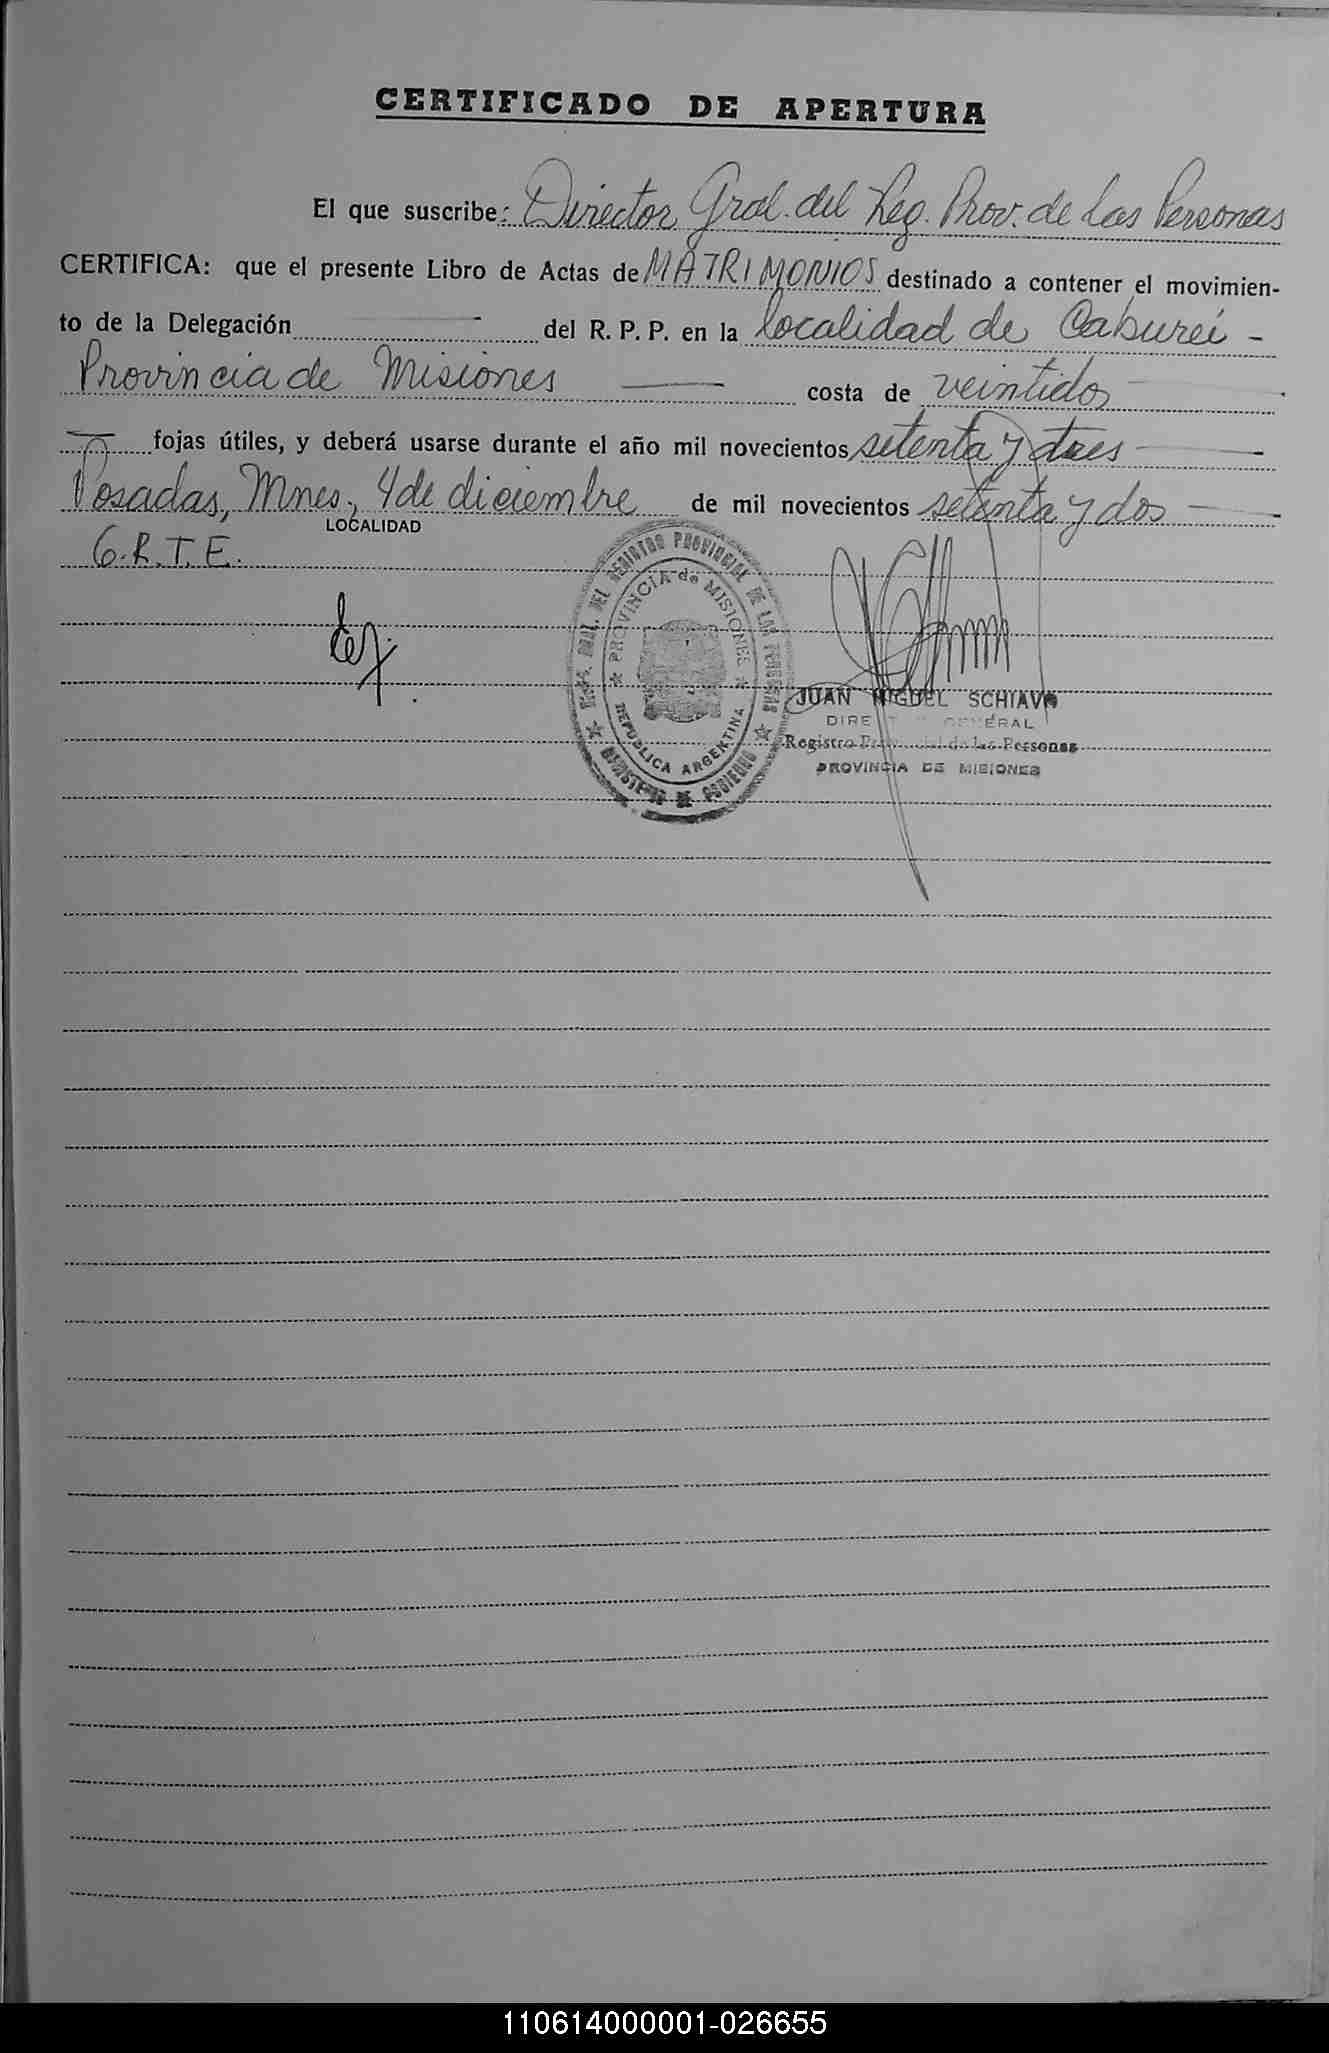 CERTIFICADO DE APERTURA
El que suscribe: Director Gral. del Reg. Prov. de las Personas
CERTIFICA: que el presente Libro de Actas de MATRIMONIOS destinado a contener el movimien-
to de la Delegación del R. P. P. en la localidad de Caburei -
Provincia de Misiones costa de veintidos
fojas útiles, y deberá usarse durante el año mil novecientos setenta y tres
Posadas, Mnes., 4 de diciembre de mil novecientos setenta y dos
LOCALIDAD
G.R.T.E.
DIREC. GRAL. DEL REGISTRO PROVINCIAL DE LAS PERSONAS
PROVINCIA de MISIONES
REPUBLICA ARGENTINA
MINISTERIO DE GOBIERNO
JUAN MIGUEL SCHIAVO
DIRECTOR GENERAL
Registro Provincial de las Personas
PROVINCIA DE MISIONES
110614000001-026655